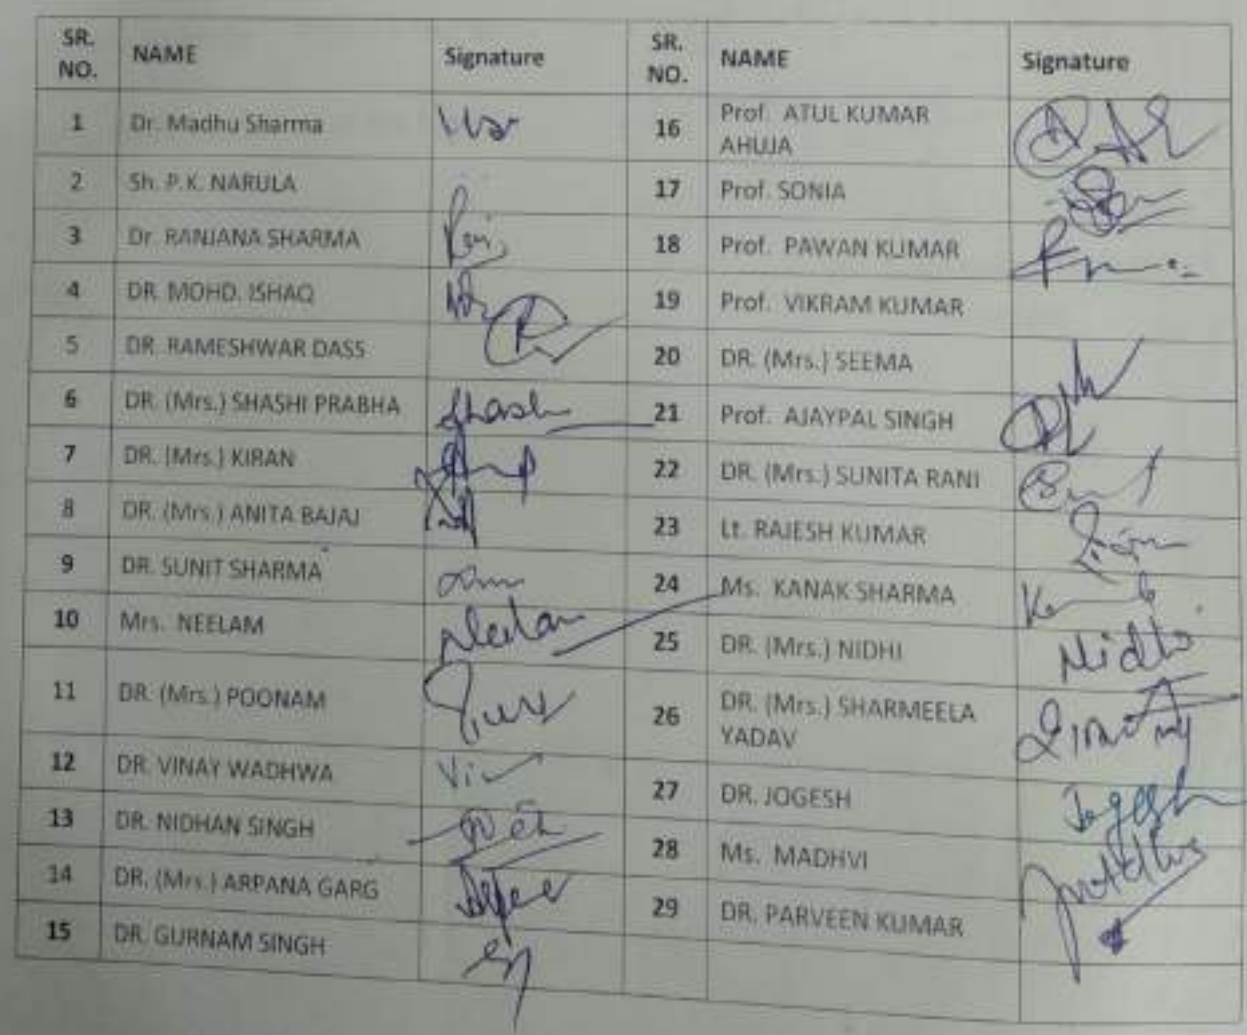 SR. NO. NAME Signature SR. NO. NAME Signature
1 Dr. Madhu Sharma 16 Prof. ATUL KUMAR AHUJA
2 Sh. P.K. NARULA 17 Prof. SONIA
3 Dr. RANJANA SHARMA 18 Prof. PAWAN KUMAR
4 DR. MOHD. ISHAQ 19 Prof. VIKRAM KUMAR
5 DR. RAMESHWAR DASS 20 DR. (Mrs.) SEEMA
6 DR. (Mrs.) SHASHI PRABHA Shash 21 Prof. AJAYPAL SINGH
7 DR. (Mrs.) KIRAN 22 DR. (Mrs.) SUNITA RANI
8 DR. (Mrs.) ANITA BAJAJ 23 Lt. RAJESH KUMAR
9 DR. SUNIT SHARMA 24 Ms. KANAK SHARMA
10 Mrs. NEELAM Neelam 25 DR. (Mrs.) NIDHI Nidhi
11 DR. (Mrs.) POONAM 26 DR. (Mrs.) SHARMEELA YADAV
12 DR. VINAY WADHWA 27 DR. JOGESH Jogesh
13 DR. NIDHAN SINGH 28 Ms. MADHVI
14 DR. (Mrs.) ARPANA GARG 29 DR. PARVEEN KUMAR
15 DR. GURNAM SINGH